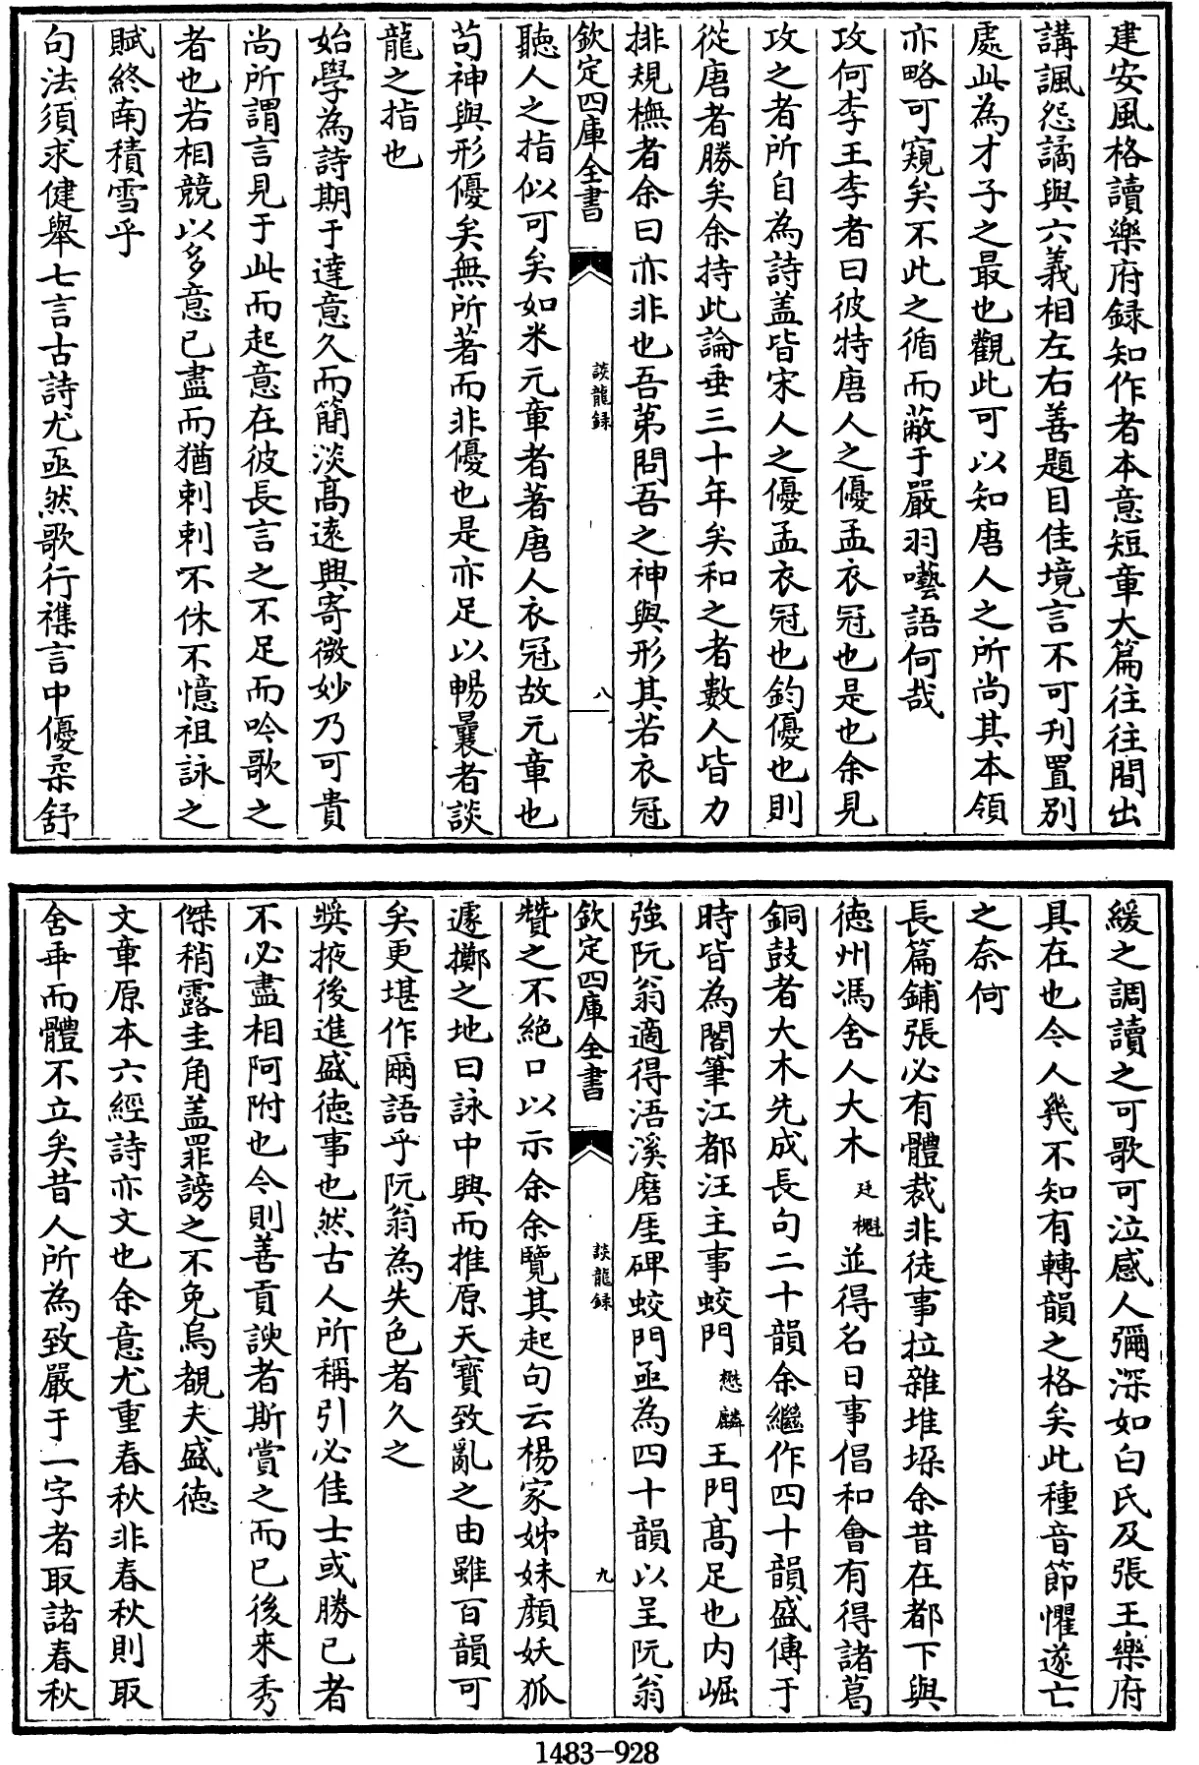 建安風格讀樂府録知作者本意短章大篇往往間出
講諷怨譎與六義相左右善題目佳境言不可刋置别
處此為才子之最也觀此可以知唐人之所尚其本領
亦略可窺矣不此之循而蔽于嚴羽囈語何哉
攻何李王李者曰彼特唐人之優孟衣冠也是也余見
攻之者所自為詩盖皆宋人之優孟衣冠也鈞優也則
從唐者勝矣余持此論垂三十年矣和之者數人皆力
排規橅者余曰亦非也吾第問吾之神與形其若衣冠
欽定四庫全書 談龍録 八
聽人之指似可矣如米元章者著唐人衣冠故元章也
苟神與形優矣無所著而非優也是亦足以暢曩者談
龍之指也
始學為詩期于達意久而簡淡髙遠興寄微妙乃可貴
尚所謂言見于此而起意在彼長言之不足而吟歌之
者也若相競以多意已盡而猶剌剌不休不憶祖詠之
賦終南積雪乎
句法須求健舉七言古詩尤亟然歌行襍言中優柔舒
緩之調讀之可歌可泣感人彌深如白氏及張王樂府
具在也今人幾不知有轉韻之格矣此種音節懼遂亡
之奈何
長篇鋪張必有體裁非徒事拉雜堆垜余昔在都下與
徳州馮舍人大木廷櫆並得名日事倡和會有得諸葛
銅鼓者大木先成長句二十韻余繼作四十韻盛傳于
時皆為閣筆江都汪主事蛟門懋麟王門髙足也内崛
強阮翁適得浯溪磨厓碑蛟門亟為四十韻以呈阮翁
欽定四庫全書 談龍録 九
贊之不絶口以示余余覽其起句云楊家姊妹顔妖狐
遽擲之地曰詠中興而推原天寳致亂之由雖百韻可
矣更堪作爾語乎阮翁為失色者久之
奬掖後進盛徳事也然古人所稱引必佳士或勝已者
不必盡相阿附也今則善貢諛者斯賞之而已後來秀
傑稍露圭角盖罪謗之不免烏覩夫盛徳
文章原本六經詩亦文也余意尤重春秋非春秋則取
舍乖而體不立矣昔人所為致嚴于一字者取諸春秋
1483-928